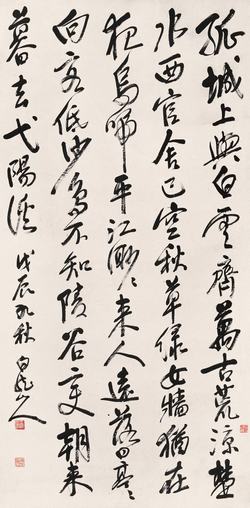 孤城上與白雲齊萬古荒涼楚
水西官舍已空秋草綠女牆猶在
夜烏啼平江渺々來人遠落日亭々
向客低沙鳥不知陵谷變朝來
暮去弋陽溪
戊辰九秋